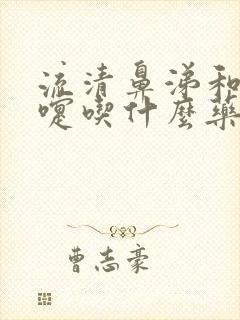 流清鼻涕和
嚏喫什麼藥
曹志豪